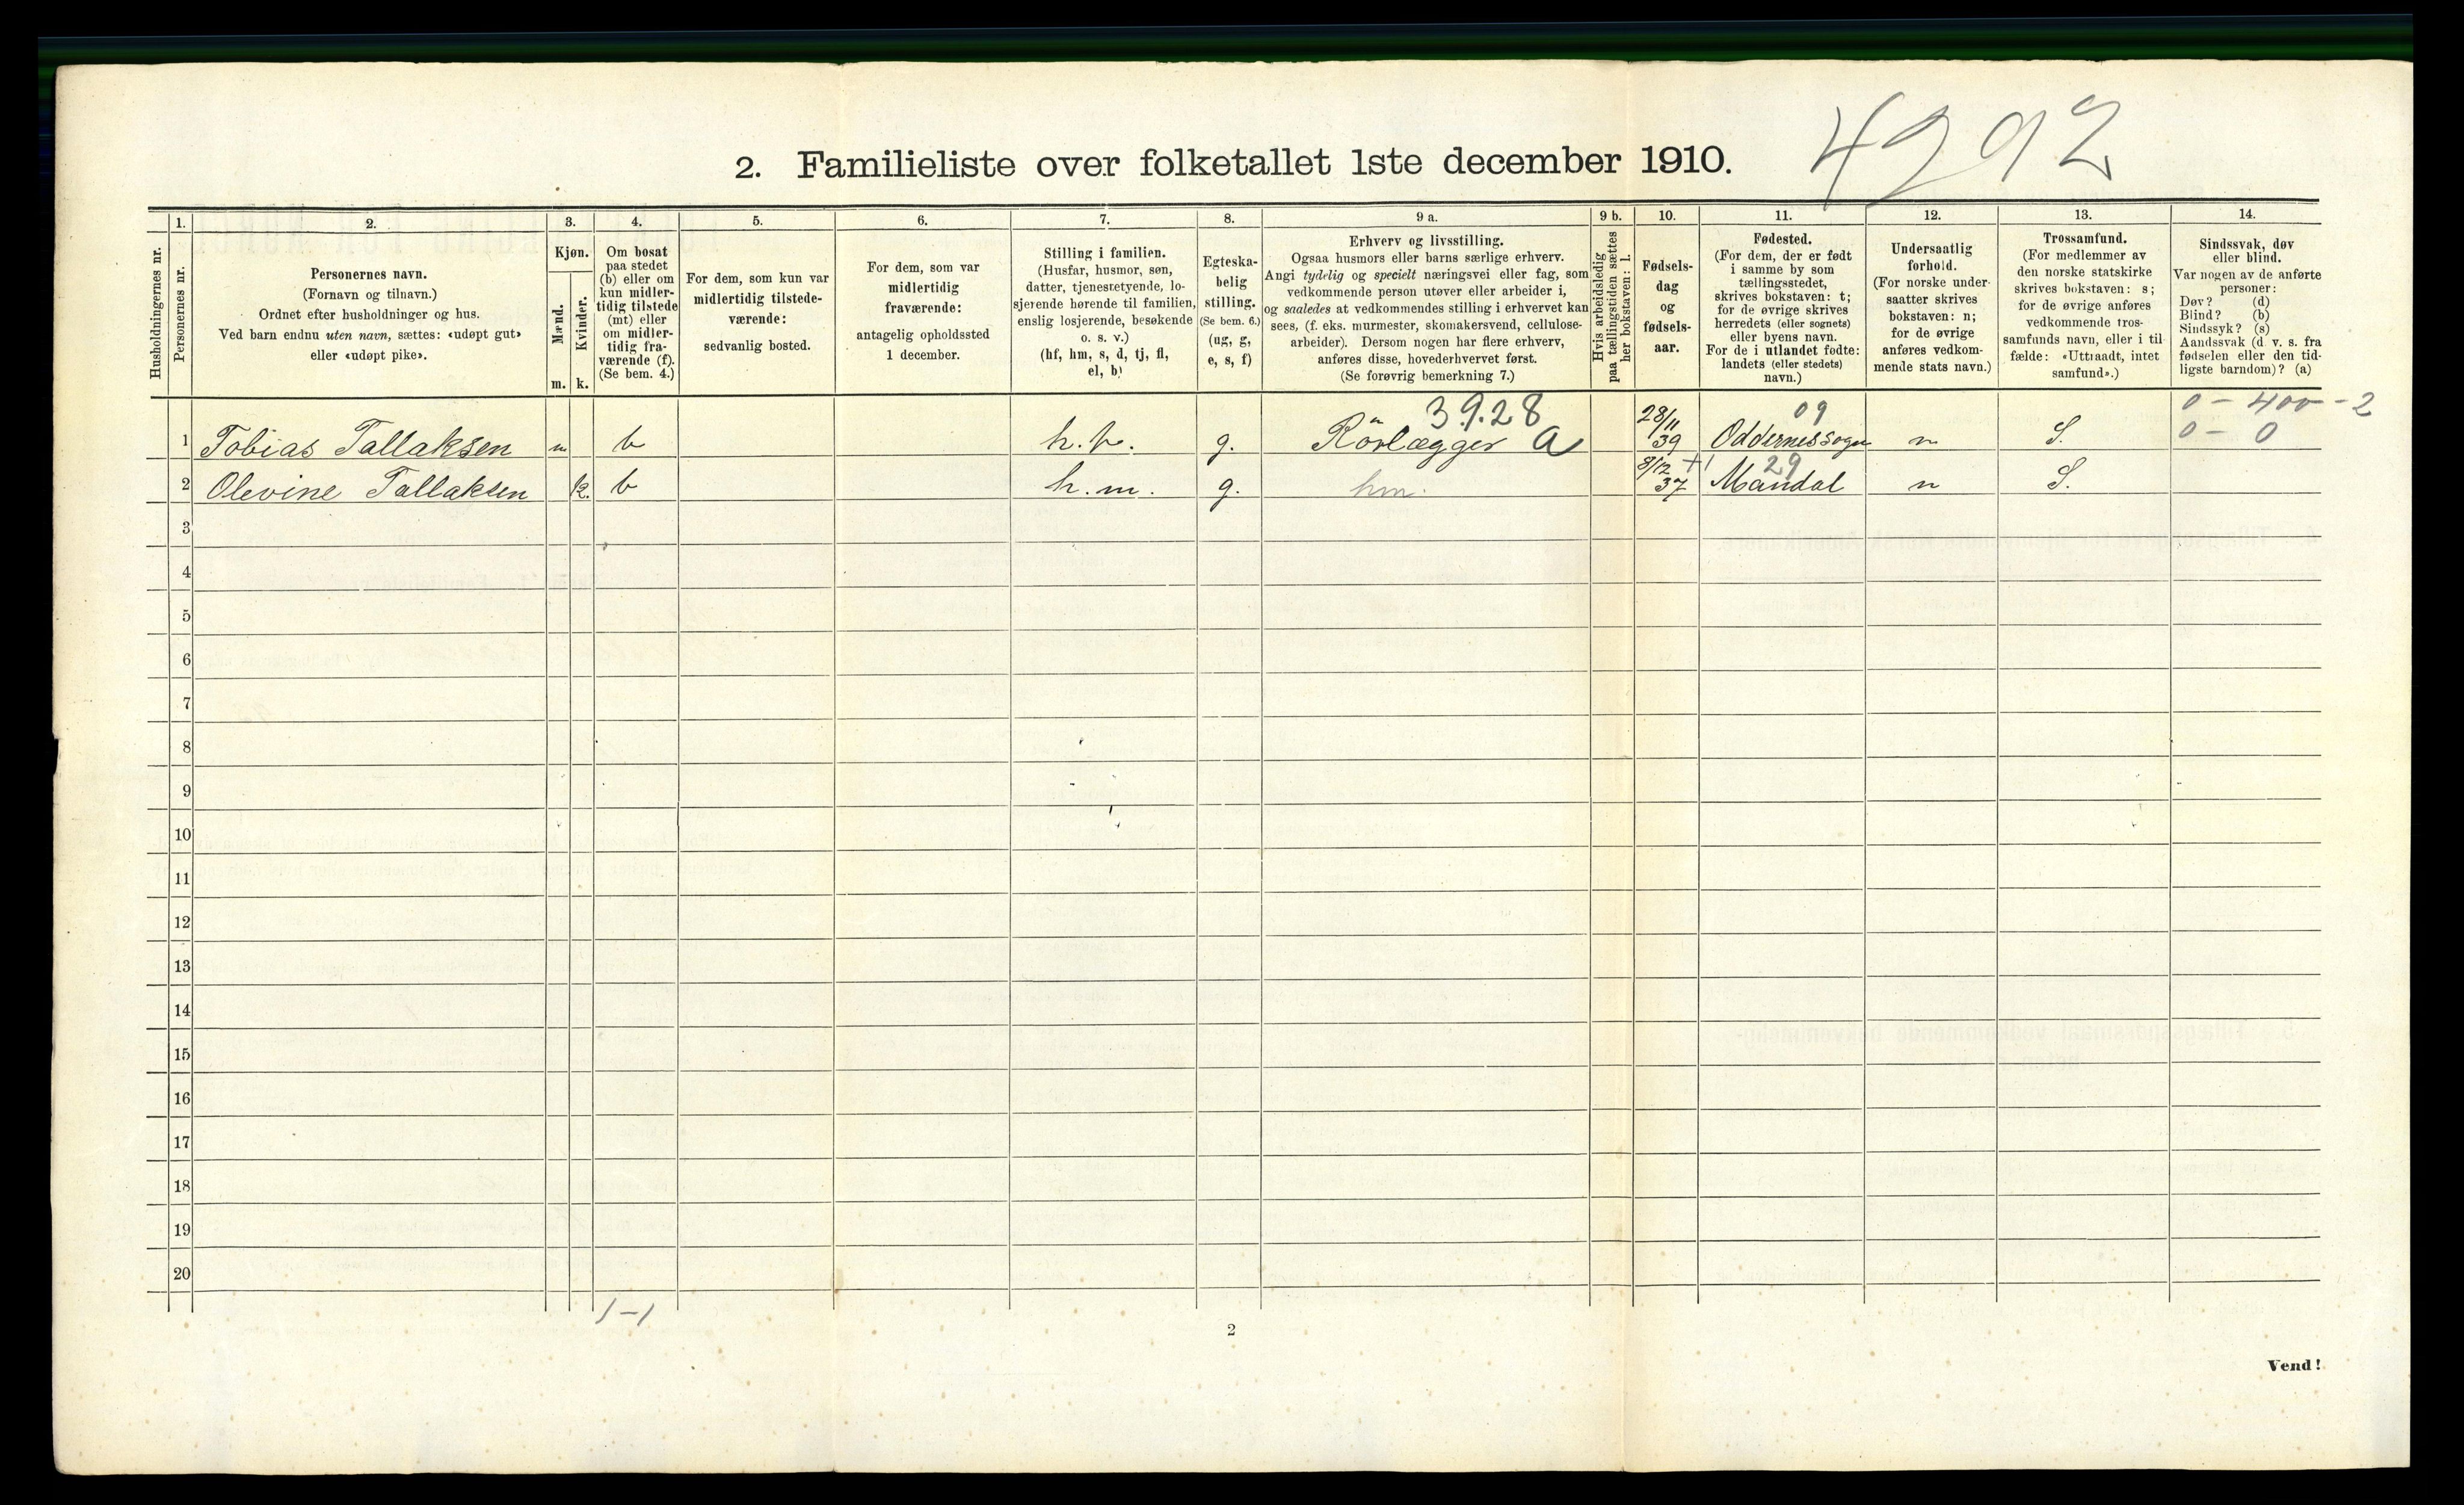 4292
2. Familieliste over folketallet 1ste december 1910.
Husholdningernes nr.
1.
Personernes nr.
2.
Personernes navn.
(Fornavn og tilnavn.)
Ordnet efter husholdninger og hus.
Ved barn endnu uten navn, sættes: «udøpt gut»
eller «udøpt pike».
3.
Kjøn.
Mænd.
Kvinder.
m. k.
4.
Om bosat
paa stedet
(b) eller om
kun midler-
tidig tilstede
(mt) eller
om midler-
tidig fra-
værende (f).
(Se bem. 4.)
5.
For dem, som kun var
midlertidig tilstede-
værende:
sedvanlig bosted.
6.
For dem, som var
midlertidig
fraværende:
antagelig opholdssted
1 december.
7.
Stilling i familien.
(Husfar, husmor, søn,
datter, tjenestetyende, lo-
sjerende hørende til familien,
enslig losjerende, besøkende
o. s. v.)
(hf, hm, s, d, tj, fl,
el, b)
8.
Egteska-
belig
stilling.
(Se bem. 6.)
(ug, g,
e, s, f)
9 a.
Erhverv og livsstilling.
Ogsaa husmors eller barns særlige erhverv.
Angi tydelig og specielt næringsvei eller fag, som
vedkommende person utøver eller arbeider i,
og saaledes at vedkommendes stilling i erhvervet kan
sees, (f. eks. murmester, skomakersvend, cellulose-
arbeider). Dersom nogen har flere erhverv,
anføres disse, hovederhvervet først.
(Se forøvrig bemerkning 7.)
9 b.
Hvis arbeidsledig
paa tællingstiden sættes
her bokstaven: l.
10.
Fødsels-
dag
og
fødsels-
aar.
11.
Fødested.
(For dem, der er født
i samme by som
tællingsstedet,
skrives bokstaven: t;
for de øvrige skrives
herredets (eller sognets)
eller byens navn.
For de i utlandet fødte:
landets (eller stedets)
navn.)
12.
Undersaatlig
forhold.
(For norske under-
saatter skrives
bokstaven: n;
for de øvrige
anføres vedkom-
mende stats navn.)
13.
Trossamfund.
(For medlemmer av
den norske statskirke
skrives bokstaven: s;
for de øvrige anføres
vedkommende tros-
samfunds navn, eller i til-
fælde: «Uttraadt, intet
samfund».)
14.
Sindssvak, døv
eller blind.
Var nogen av de anførte
personer:
Døv? (d)
Blind? (b)
Sindssyk? (s)
Aandssvak (d. v. s. fra
fødselen eller den tid-
ligste barndom)? (a)
39.28 09 0 - 400 - 2
1 Tobias Tallaksen m b h.f. g. Rörlægger a 28/11 39 Oddernessogn n S. 0 - 0
29
2 Olevine Tallaksen k. b h.m. g. hm. 8/12 37 Mandal n S.
3
4
5
6
7
8
9
10
11
12
13
14
15
16
17
18
19
20
1-1
2
Vend!